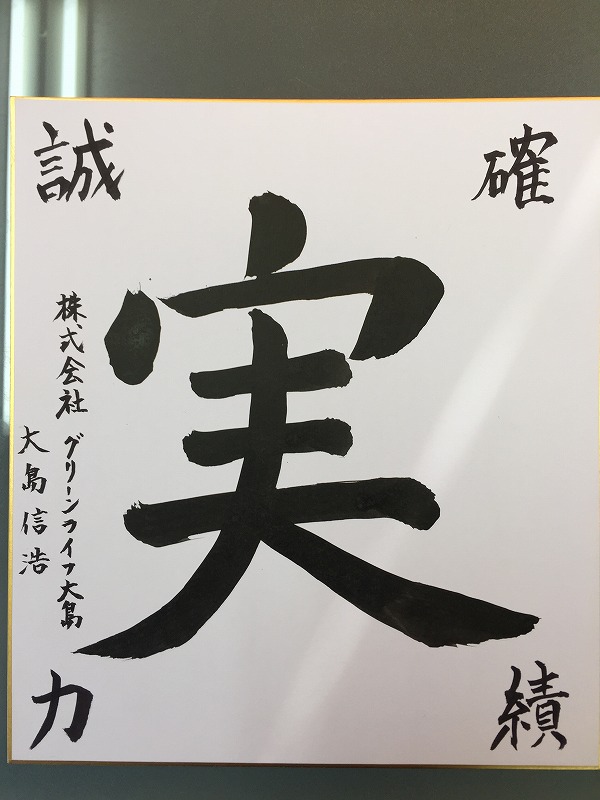 確
績
実
誠
力
株式会社 グリーンライフ大島
大島信浩